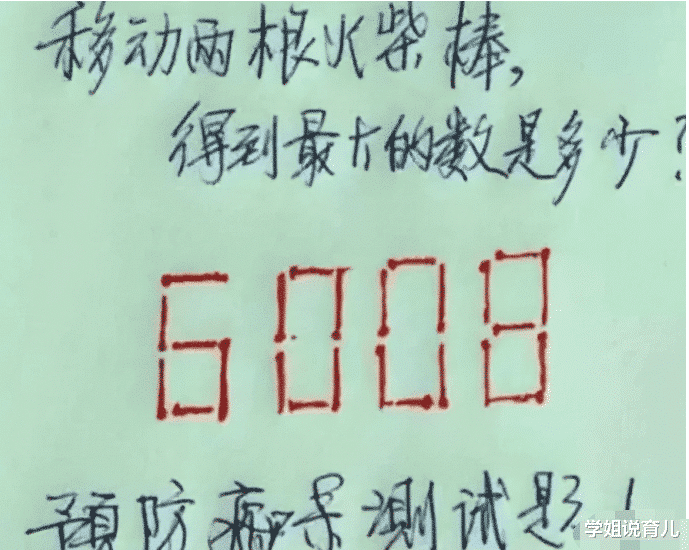 移动两根火柴棒,
得到最大的数是多少?
6008
预防痴呆测试题!
学姐说育儿